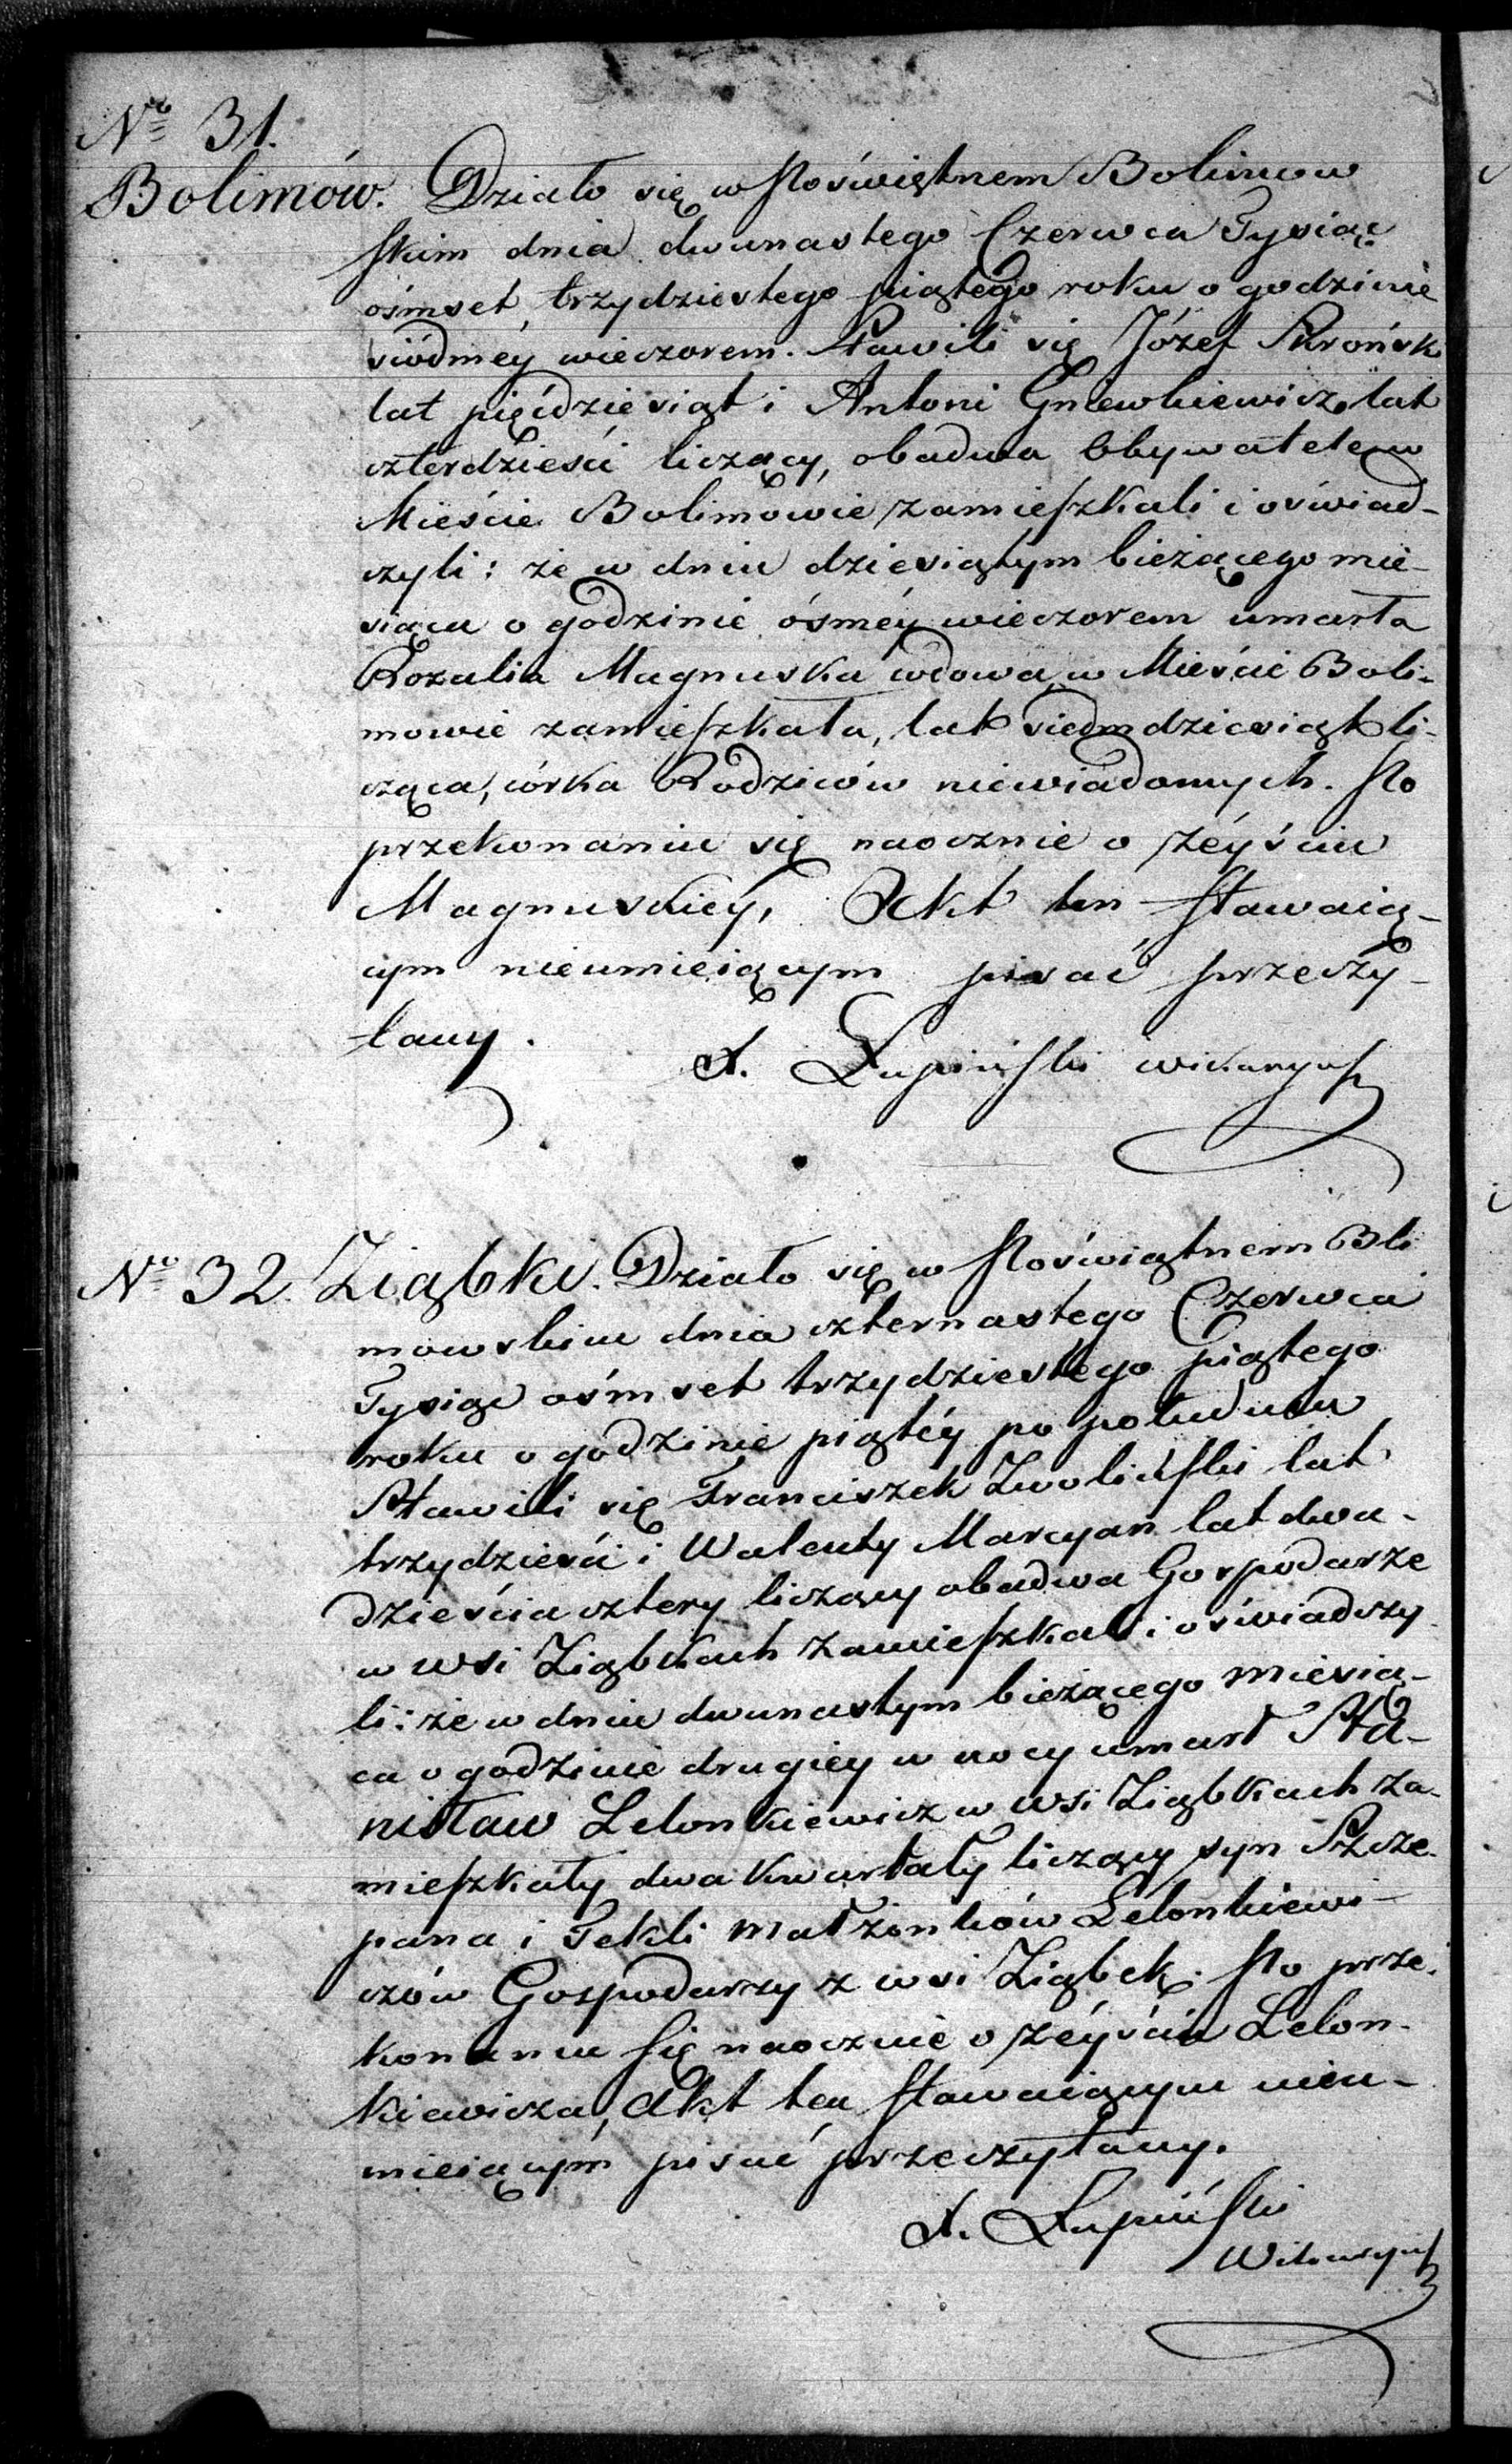 No 31.
Bolimów. Działo się w Poświętnem Bolimow
skim dnia dwunastego Czerwca Tysiąc
ośmset trzydziestego piątego roku o godzinie
siódméy wieczorem. Stawili się Józef Skroński
lat pięćdziesiąt i Antoni Gniewkiewicz lat
czterdzieści liczący, obadwa Obywatele w
Mieście Bolimowie zamieszkali i oświad-
czyli: że w dniu dziesiątym bieżącego mie-
siąca o godzinie ósméy wieczorem umarła
Rozalia Magnuska wdowa, w Mieście Boli-
mowie zamieszkała, lat siedmdziesiąt li-
cząca, córka Rodziców niewiadomych. Po
przekonaniu się naocznie o zéyściu
Magnuskiéy, Akt ten stawaią-
cym nieumieiącym pisać przeczy-
tany.
X. Łupiński wikaryusz
No 32. Ziąbki. Działo się w Poświątnem Boli
mowskim dnia czternastego Czerwca
Tysiąc ośmset trzydziestego piątego
roku o godzinie piątéy po południu
Stawili się Franciszek Zwoliński lat
trzydzieści i Walenty Marcyan lat dwa-
dzieścia cztery liczący obadwa Gospodarze
w wsi Ziąbkach zamieszkali i oświadczy
li: że w dniu dwunastym bieżącego miesią-
ca o godzinie drugiey w nocy umarł Sta-
nisław Lelonkiewicz w wsi Ziąbkach za-
mieszkały dwa kwartały liczący syn Szcze-
pana i Tekli małżonków Lelonkiewi-
czów Gospodarzy z wsi Ziąbek. Po prze-
konaniu się naocznie o zéyściu Lelon-
kiewicza, Akt ten stawaiącym nieu-
mieiącym pisać przeczytany.
X. Łupiński
Wikaryusz